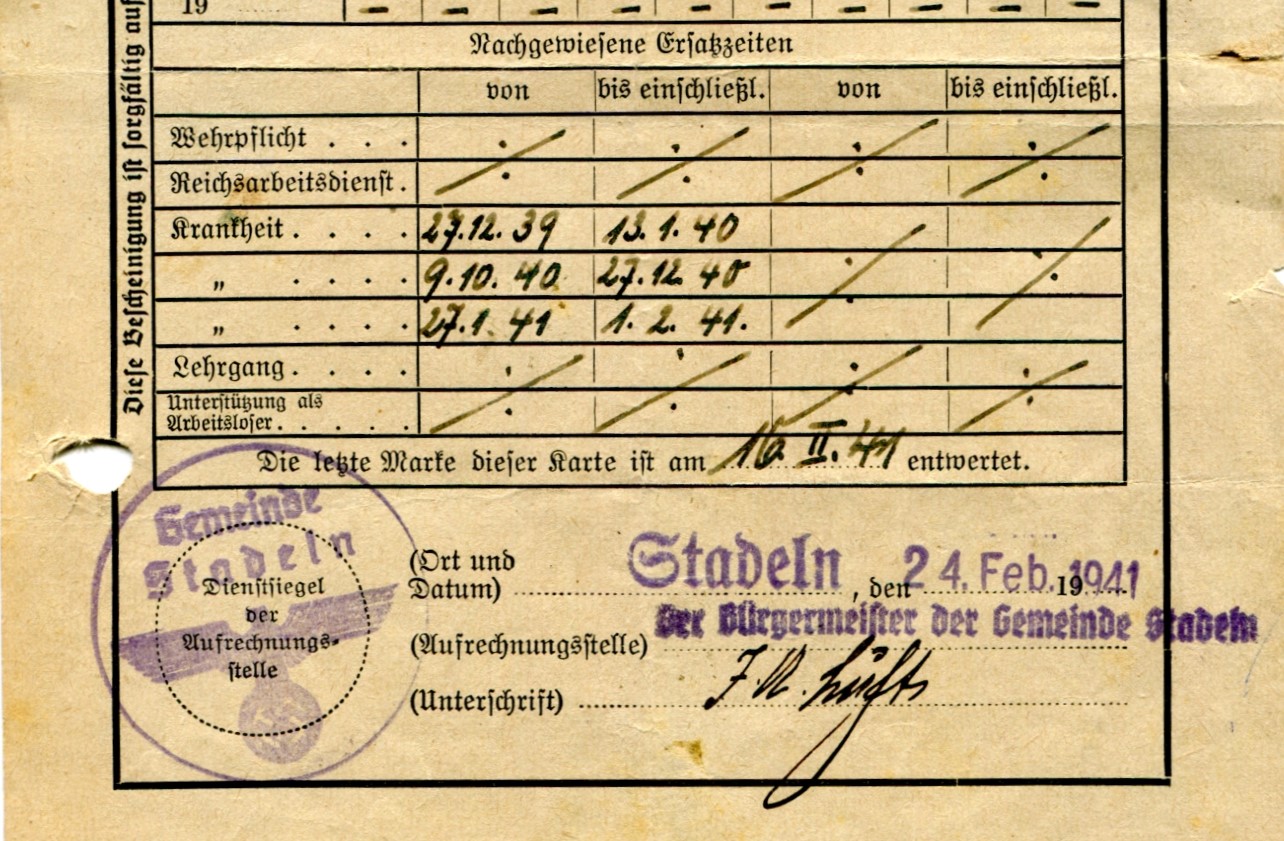 19 — — — — — — — — — —
Nachgewiesene Ersatzzeiten
von bis einschließl. von bis einschließl.
Wehrpflicht . . .
Reichsarbeitsdienst .
Krankheit . . . . 27.12.39 13.1.40
„ . . . . 9.10.40 27.12.40
„ . . . . 27.1.41 1.2.41.
Lehrgang . . . .
Unterstützung als
Arbeitsloser . . . . .
Die letzte Marke dieser Karte ist am 16. II. 41 entwertet.
Diese Bescheinigung ist sorgfältig auf
Gemeinde
Stadeln
Dienstsiegel
der
Aufrechnungs-
stelle
(Ort und
Datum) Stadeln, den 24. Feb. 19 1941
Der Bürgermeister der Gemeinde Stadeln
(Aufrechnungsstelle)
(Unterschrift)